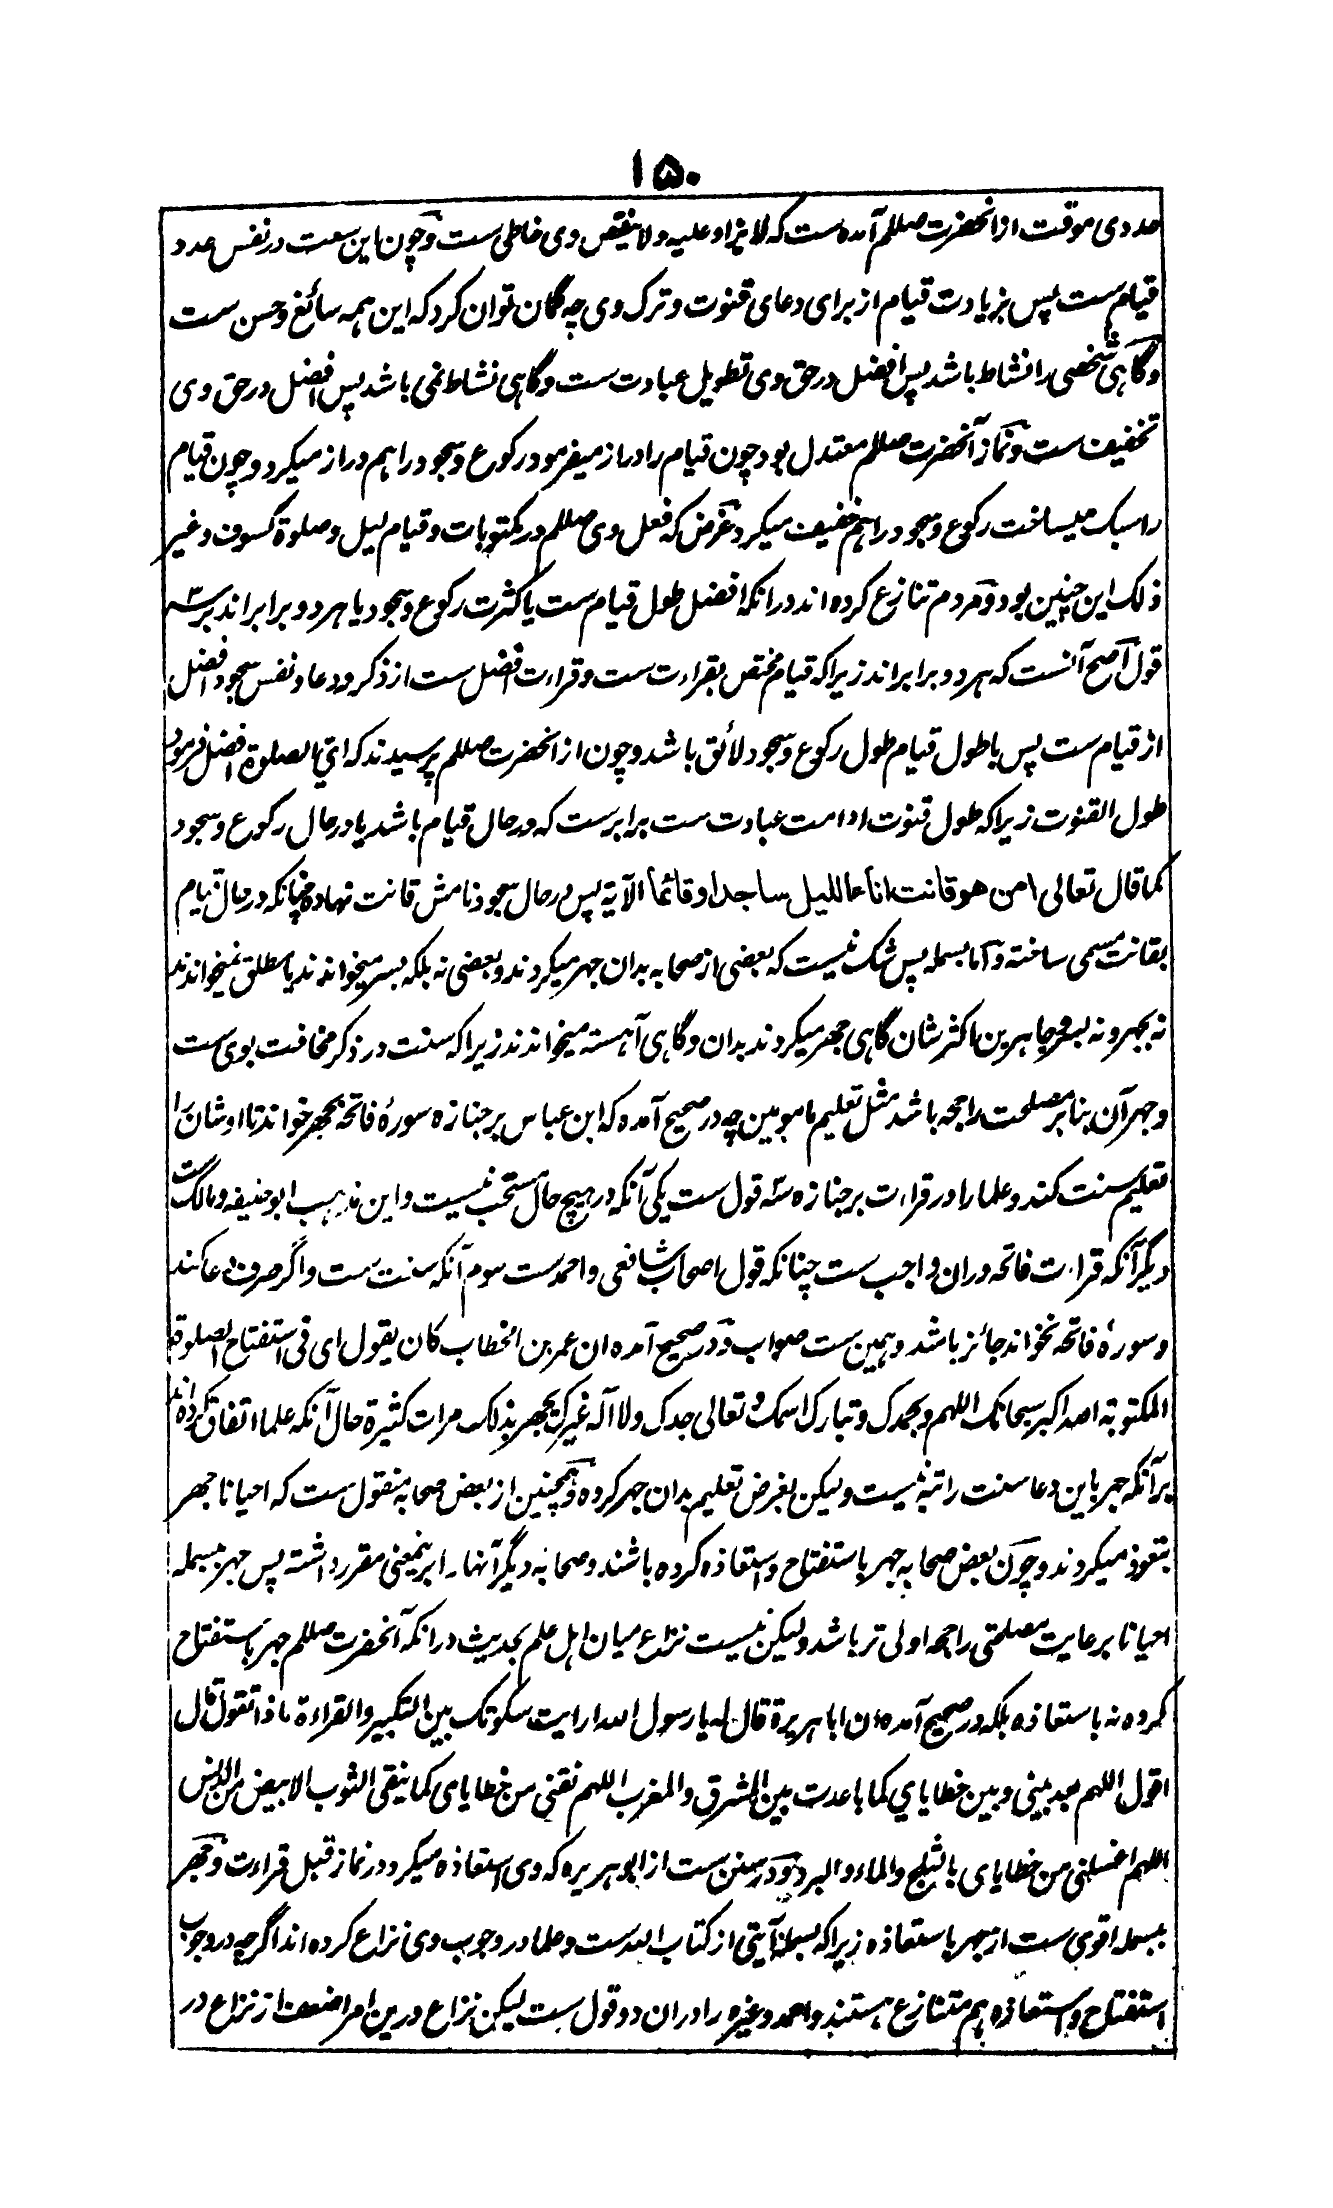 ۱۵۰
عددی موقت از آنحضرت صللم آمده ست که لا یزاد علیه ولا ینقص وی خاطی ست و چون این سعت در نفس عدد
قیام ست پس بزیادت قیام از برای دعای قنوت و ترک وی چه گمان توان کرد که این همه سائغ و حسن ست
و گاهی شخصی را نشاط باشد پس افضل در حق وی تطویل عبادت ست و گاهی نشاط نمی باشد پس افضل در حق وی
تخفیف ست و نماز آنحضرت صللم معتدل بود چون قیام را دراز میفرمود رکوع و سجود را هم دراز میکرد و چون قیام
را سبک میساخت رکوع و سجود را هم خفیف میکرد غرض که فعل وی صللم در مکتوبات و قیام لیل و صلوة کسوف و غیر
ذلک این چنین بود و مردم تنازع کرده اند در انکه افضل طول قیام ست یا کثرت رکوع و سجود یا هر دو برابر اند بر سه
قول اصح آنست که هر دو برابر اند زیرا که قیام مختص بقراءت ست و قراءت افضل ست از ذکر و دعا و نفس سجود افضل
از قیام ست پس با طول قیام طول رکوع و سجود لائق باشد و چون از انحضرت صللم پرسیدند که ای الصلوة افضل فرمود
طول القنوت زیرا که طول قنوت ادامت عبادت ست برابرست که در حال قیام باشد یا در حال رکوع و سجود
کما قال تعالی امن هو قانت اناء اللیل ساجدا و قائما الآیة پس در حال سجود نامش قانت نهاده چنانکه در حال قیام
بقانت مسمی ساخته و اما بسمله پس شک نیست که بعضی از صحابه بدان جهر میکردند و بعضی نه بلکه بسر میخواندند یا مطلق نمیخواندند
نه بجهر و نه بسر و جاهرین اکثر شان گاهی جهر میکردند بدان و گاهی آهسته میخواندند زیرا که سنت در ذکر مخافت بوی ست
و جهر آن بنا بر مصلحت راجحه باشد مثل تعلیم مامومین چه در صحیح آمده که ابن عباس بر جنازه سورهٔ فاتحه بجهر خواند تا اوشان را
تعلیم سنت کند و علما را در قراءت بر جنازه سه قول ست یکی آنکه در هیچ حال مستحب نیست و این مذهب ابو حنیفه و مالک ست
دیگر آنکه قراءت فاتحه دران واجب ست چنانکه قول اصحاب شافعی و احمد ست سوم آنکه سنت ست و اگر صرف دعا کند
و سورهٔ فاتحه نخواند جائز باشد و همین ست صواب و در صحیح آمده ان عمر بن الخطاب کان یقول ای فی استفتاح الصلوة
المکتوبة الله اکبر سبحانک اللهم و بحمدک و تبارک اسمک و تعالی جدک ولا اله غیرک یجهر بذلک مرات کثیرة حال آنکه علما اتفاق کرده اند
بر آنکه جهر باین دعا سنت راتبه نیست و لیکن بغرض تعلیم بدان جهر کرده و همچنین از بعض صحابه منقول ست که احیانا جهر
بتعوذ میکردند و چون بعض صحابه جهر باستفتاح و استعاذه کرده باشند و صحابه دیگر آنها را برینمعنی مقرر داشته پس جهر بسمله
احیانا برعایت مصلحتی راجحه اولی تر باشد و لیکن نیست نزاع میان اهل علم بحدیث در انکه آنحضرت صللم جهر باستفتاح
کرده نه باستعاذه بلکه در صحیح آمده ان ابا هریرة قال له یا رسول الله ارایت سکوتک بین التکبیر والقراءة ماذا تقول قال
اقول اللهم بعد بینی و بین خطایای کما باعدت بین المشرق والمغرب اللهم نقنی من خطایای کما ینقی الثوب الابیض من الدنس
اللهم اغسلنی من خطایای بالثلج والماء والبرد و در سنن ست از ابو هریره که وی استعاذه میکرد در نماز قبل قراءت و جهر
ببسمله اقوی ست از جهر باستعاذه زیرا که بسمله آیتی از کتاب الله ست و علما در وجوب وی نزاع کرده اند اگرچه در وجوب
استفتاح و استعاذه هم متنازع هستند و احمد و غیره را دران دو قول ست لیکن نزاع درین امر اضعف از نزاع در